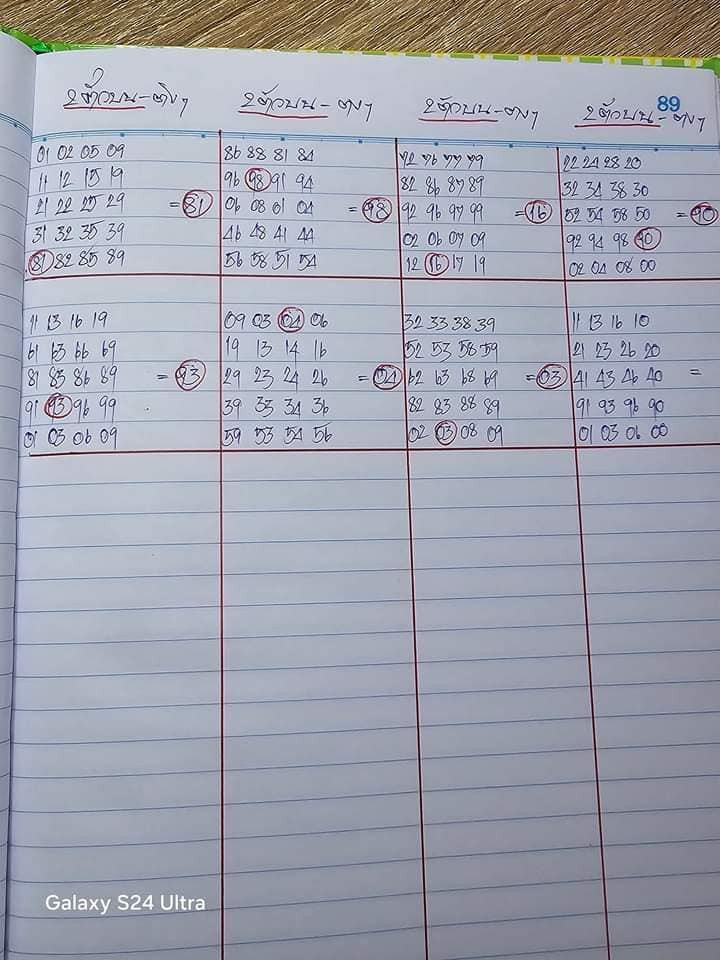 89
2ตัวบน-ตรงๆ 2ตัวบน-ตรงๆ 2ตัวบน-ตรงๆ 2ตัวบน-ตรงๆ
01 02 05 09
11 12 15 19
21 22 25 29 = 81
31 32 35 39
81 82 85 89
86 88 81 84
96 98 91 94
06 08 01 04 = 98
46 48 41 44
56 58 51 54
72 76 77 79
82 86 87 89
92 96 97 99 = 16
02 06 07 09
12 16 17 19
22 24 28 20
32 34 38 30
52 54 58 50 = 90
92 94 98 90
02 04 08 00
11 13 16 19
61 63 66 69
81 83 86 89 = 93
91 93 96 99
01 03 06 09
09 03 04 06
19 13 14 16
29 23 24 26 = 04
39 33 34 36
59 53 54 56
32 33 38 39
52 53 58 59
62 63 68 69 = 03
82 83 88 89
02 03 08 09
11 13 16 10
21 23 26 20
41 43 46 40 =
91 93 96 90
01 03 06 00
Galaxy S24 Ultra